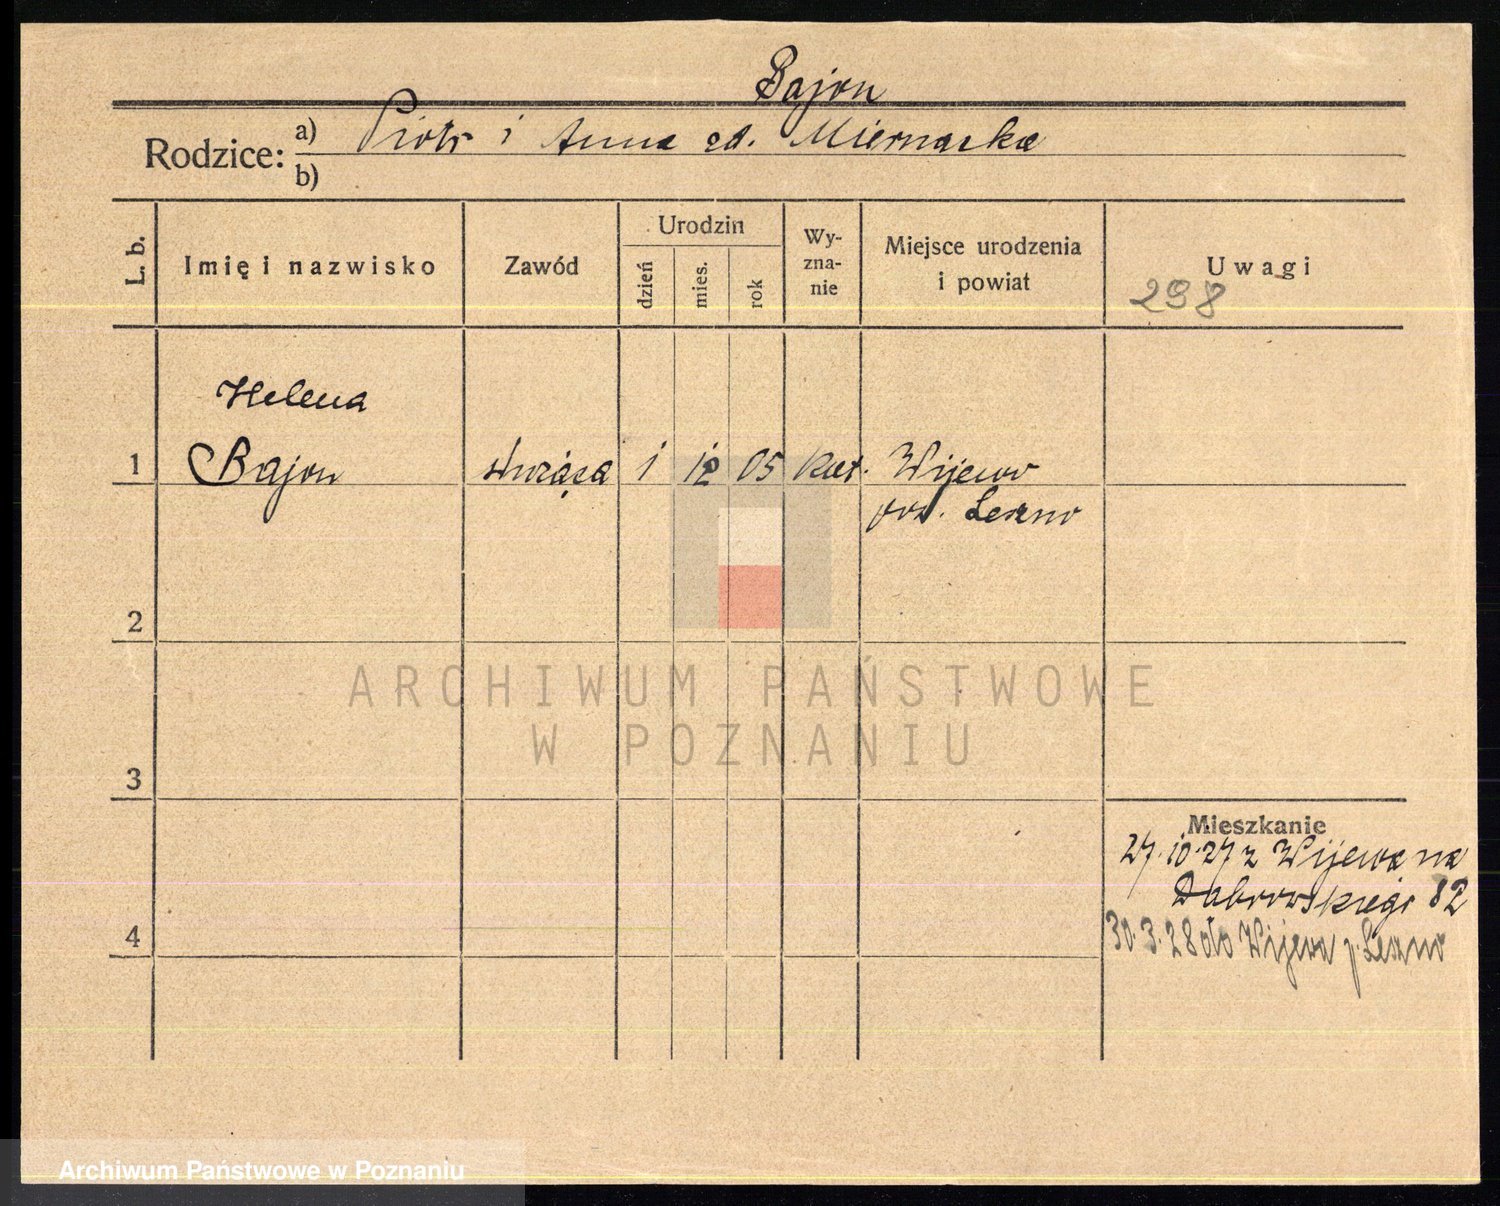 Bajon
Rodzice: a) Piotr i Anna zd. Miernacka
b)
L. b. Imię i nazwisko Zawód Urodzin dzień mies. rok Wy-zna-nie Miejsce urodzenia i powiat Uwagi
298
Helena
1 Bajon służąca 1 12 05 kat. Wijewo
pow. Leszno
2
ARCHIWUM PAŃSTWOWE
W POZNANIU
3
Mieszkanie
27.10.27 z Wijewa na
Dabrowskiego 82
4
30.3.28 do Wijewa p. Leszno
Archiwum Państwowe w Poznaniu